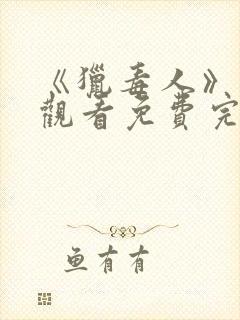 《獵毒人》
觀看免費完
鱼有有